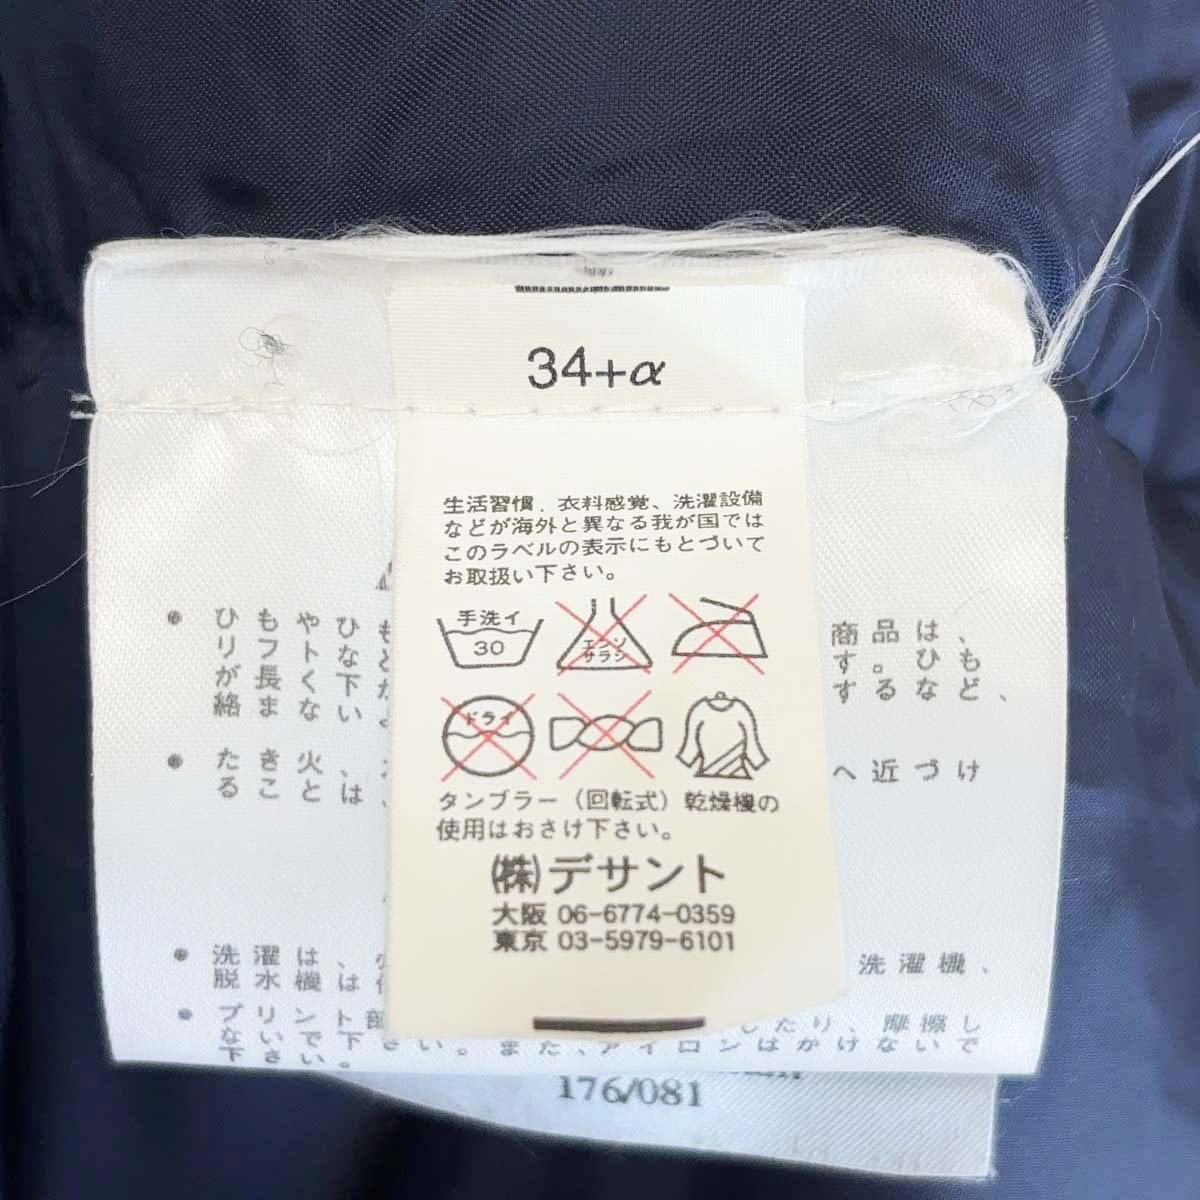 34+α
生活習慣、衣料感覚、洗濯設備
などが海外と異なる我が国では
このラベルの表示にもとづいて
お取扱い下さい。
手洗イ
30
エンソ
サラシ
ドライ
タンブラー（回転式）乾燥機の
使用はおさけ下さい。
㈱デサント
大阪 06-6774-0359
東京 03-5979-6101
ひもやひも
商品は、
リフトなど
す。ひも
が長く下か
するなど、
絡まない
たき火、
へ近づけ
ることは、
洗濯は、
洗濯機、
脱水機は
プリント部
したり、摩擦し
ないで下さい。また、アイロンはかけないで
下さい。
176/081